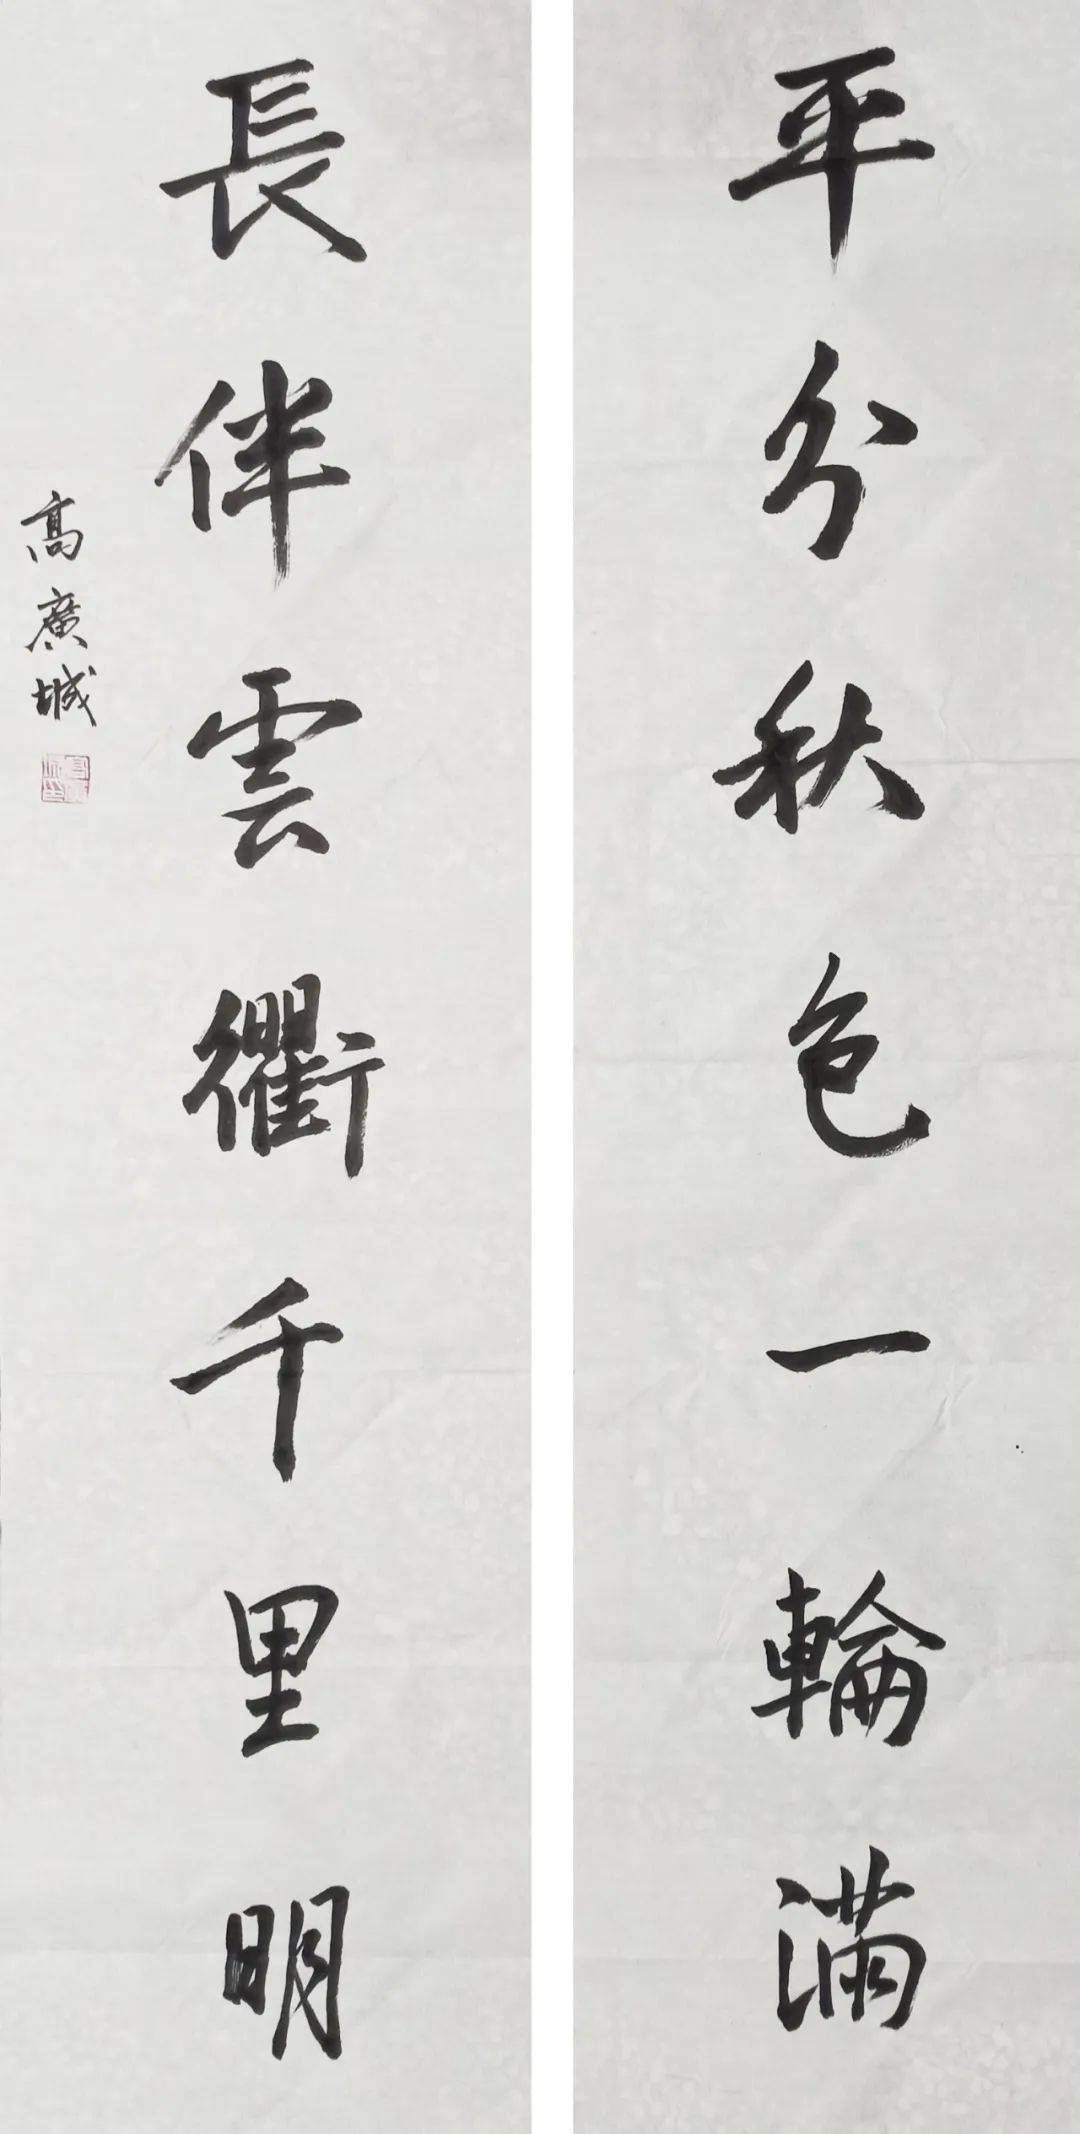 平分秋色一輪滿
長伴雲衢千里明
高廣城